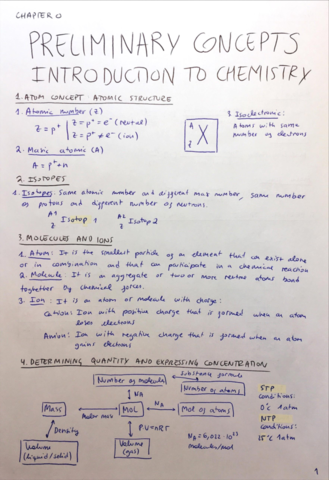 CHAPTER 0
PRELIMINARY CONCEPTS
INTRODUCTION TO CHEMISTRY
1. ATOM CONCEPT. ATOMIC STRUCTURE
1. Atomic number (Z)
Z = p⁺ | Z = p⁺ = e⁻ (neutral)
Z = p⁺ ≠ e⁻ (ion)
2. Mass atomic (A)
A = p⁺ + n
A
Z X
3. Isoelectronic:
Atoms with same
number of electrons
2. ISOTOPES
1. Isotopes: Same atomic number and different mass number, same number
of protons and different number of neutrons.
A1
Z Isotop 1
A2
Z Isotop 2
3. MOLECULES AND IONS
1. Atom: It is the smallest particle of an element that can exist alone
or in combination and that can participate in a chemical reaction
2. Molecule: It is an aggregate of two or more neutral atoms
together by chemical forces.
3. Ion: It is an atom or molecule with charge:
Cation: Ion with positive charge that is formed when an atom
loses electrons
Anion: Ion with negative charge that is formed when an atom
gains electrons
4. DETERMINING QUANTITY AND EXPRESSING CONCENTRATION
Substance formula
Number of molecules
Number of atoms
NA
Mass
Molar mass
MOL
NA
Mol of atoms
Density
PV=nRT
Volume
(liquid/solid)
Volume
(gas)
NA = 6,022 10²³
molecules/mol
STP
conditions:
0°C 1 atm
NTP
conditions:
25°C 1 atm
1